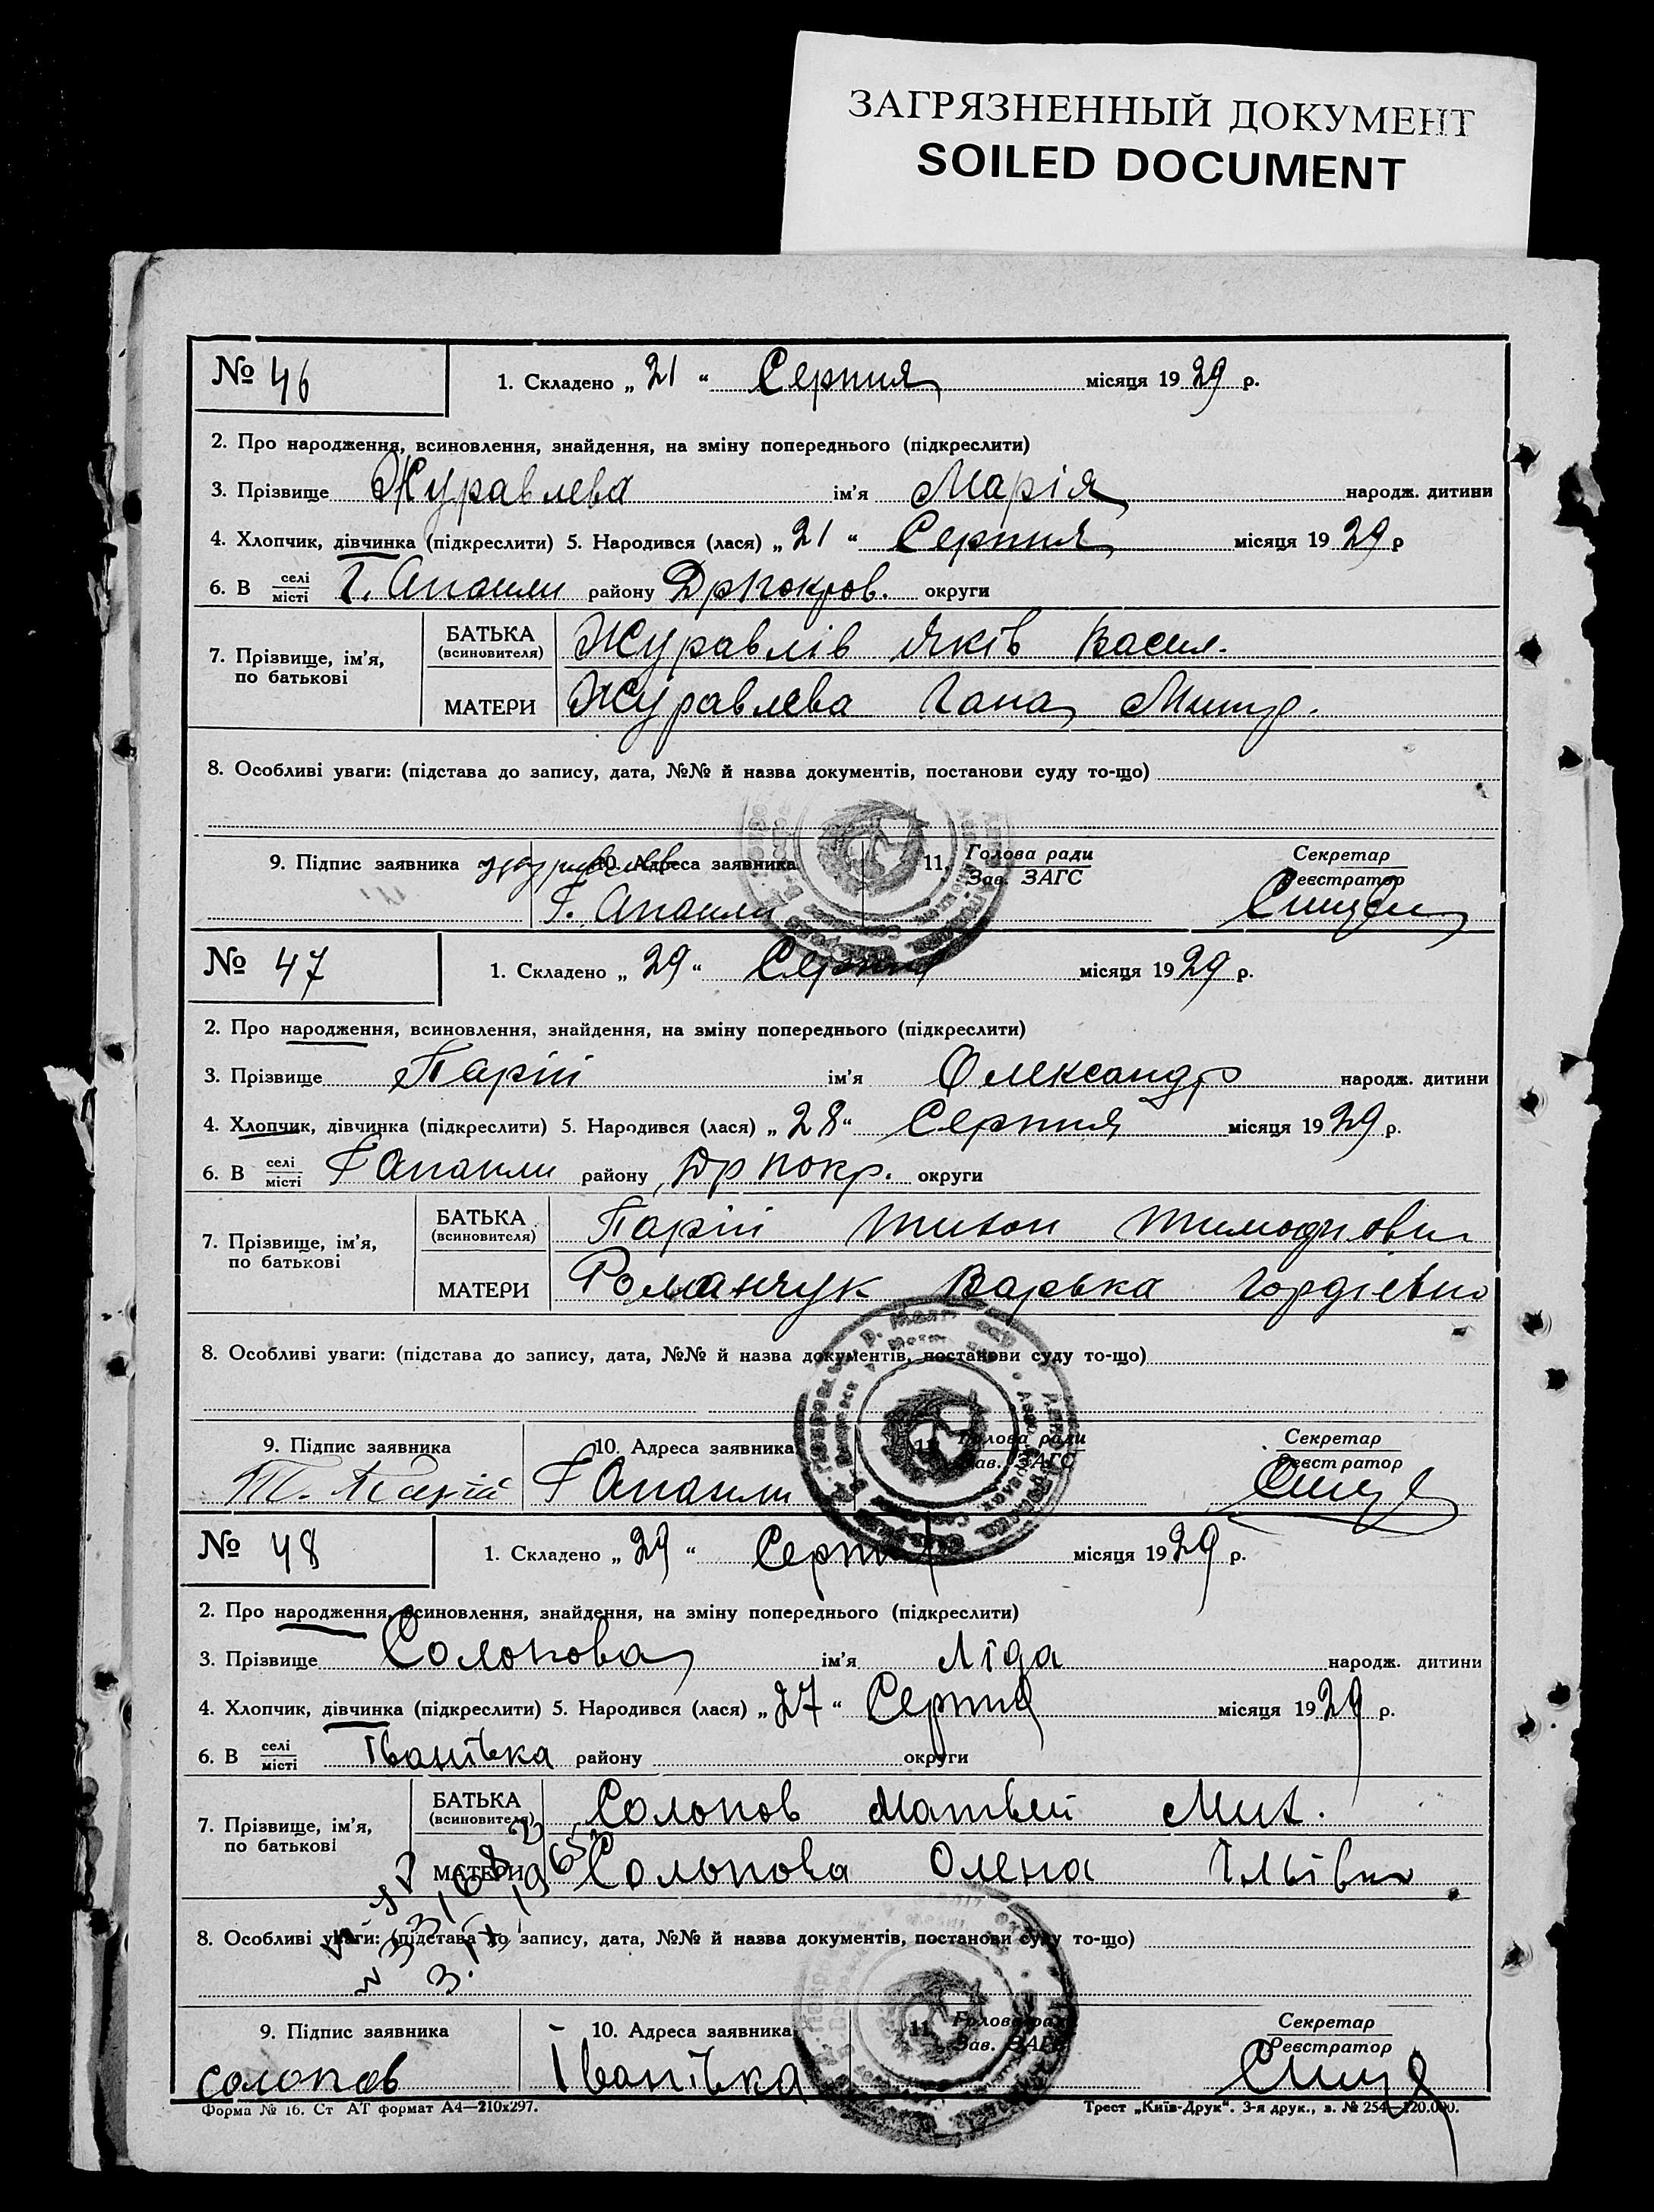 ЗАГРЯЗНЕННЫЙ ДОКУМЕНТ
SOILED DOCUMENT
№ 46 1. Складено „ 21 “ Серпня місяця 1929 р.
2. Про народження, всиновлення, знайдення, на зміну попереднього (підкреслити)
3. Прізвище Журавлева ім'я Марія народж. дитини
4. Хлопчик, дівчинка (підкреслити) 5. Народився (лася) „ 21 “ Серпня місяця 1929 р
6. В селі місті Г. Апанли району Дрпокров. округи
7. Прізвище, ім'я, по батькові БАТЬКА (всиновителя) Журавлів Яків Васил.
МАТЕРИ Журавлева Гана
8. Особливі уваги: (підстава до запису, дата, №№ й назва документів, постанови суду то-що)
9. Підпис заявника 10. Адреса заявника 11. Голова ради Зав. ЗАГС Секретар Реєстратор
Г. Апанли
№ 47 1. Складено „ 29 “ Серпня місяця 1929 р.
2. Про народження, всиновлення, знайдення, на зміну попереднього (підкреслити)
3. Прізвище Парій ім'я Олександр народж. дитини
4. Хлопчик, дівчинка (підкреслити) 5. Народився (лася) „ 28 “ Серпня місяця 1929 р.
6. В селі місті Г Апанли району Др покр. округи
7. Прізвище, ім'я, по батькові БАТЬКА (всиновителя) Парій Тихон Тимофиович
МАТЕРИ Романчук Варька Гордієвна
8. Особливі уваги: (підстава до запису, дата, №№ й назва документів, постанови суду то-що)
9. Підпис заявника 10. Адреса заявника 11. Голова ради Зав. ЗАГС Секретар Реєстратор
Т. Парій Г Апанли
№ 48 1. Складено „ 29 “ Серпня місяця 1929 р.
2. Про народження, всиновлення, знайдення, на зміну попереднього (підкреслити)
3. Прізвище Солопова ім'я Ліда народж. дитини
4. Хлопчик, дівчинка (підкреслити) 5. Народився (лася) „ 27 “ Серпня місяця 1929 р.
6. В селі місті Іванівка району округи
7. Прізвище, ім'я, по батькові БАТЬКА (всиновителя) Солопов Матвей Мих.
МАТЕРИ Солопова Олена Ільівна
8. Особливі уваги: (підстава до запису, дата, №№ й назва документів, постанови суду то-що)
9. Підпис заявника 10. Адреса заявника 11. Голова ради Зав. ЗАГС Секретар Реєстратор
солопов Іванівка
Форма № 16. Ст АТ формат А4—210х297. Трест „Київ-Друк“. 3-я друк., з. № 254—120.000.